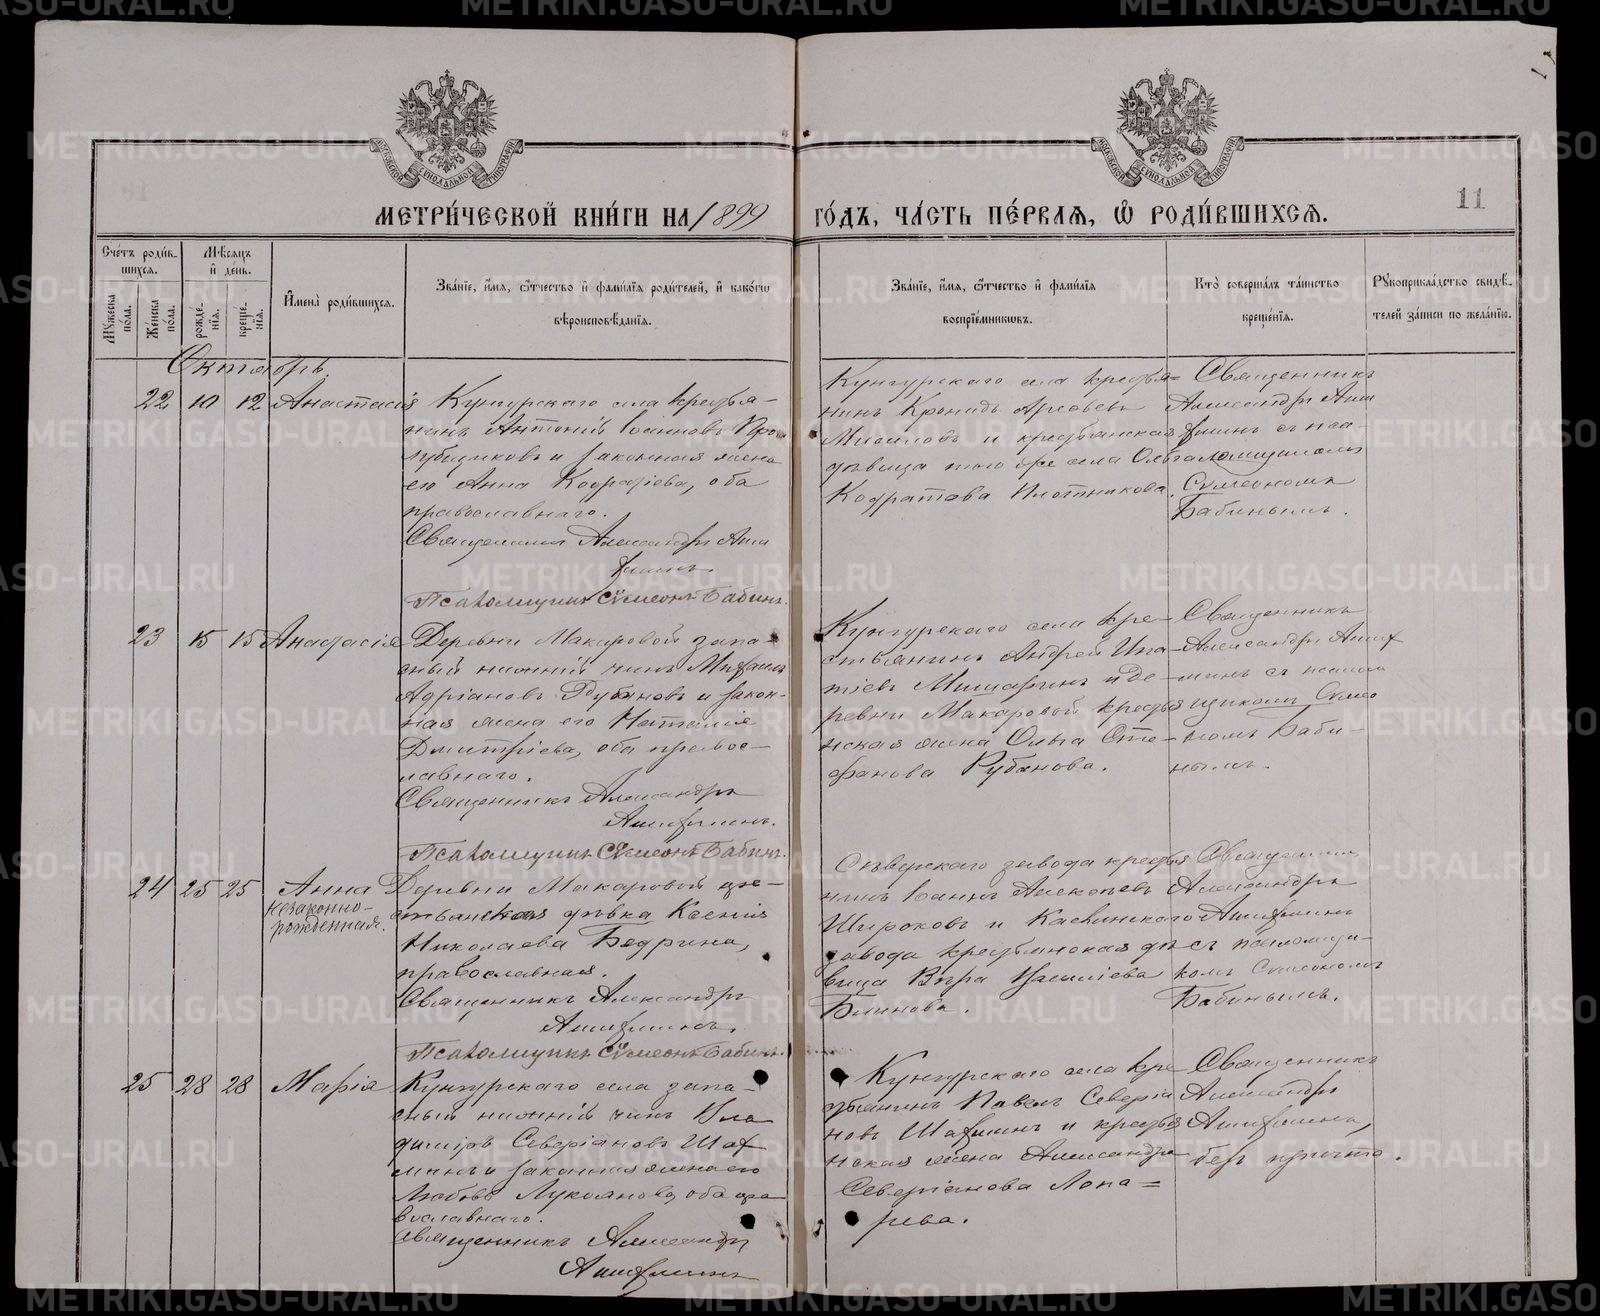 МЕТРИ́ЧЕСКОЙ КНИ́ГИ НА 1899 ГО́ДЪ, ЧА́СТЬ ПЕ́РВАЯ, Ѡ РОДИ́ВШИХСЯ.
11
Сче́тъ роди́в-
шихся.
Мѣ́сяцъ
и҆ де́нь.
Мꙋ́жеска по́ла.
Же́нска по́ла.
рожде́-
нїя.
креще́-
нїя.
И҆мена̀ роди́вшихся.
Зва́нїе, и҆́мя, ѻ҆́тчество и҆ фами́лїя роди́телей, и҆ како́гѡ
вѣроисповѣ́данїя.
Зва́нїе, и҆́мя, ѻ҆́тчество и҆ фами́лїя
воспрїе́мникѡвъ.
Кто̀ соверша́лъ та́инство
креще́нїя.
Рꙋкоприкла́дство свидѣ́-
телей за́писи по жела́нїю.
Октябрь.
22 10 12 Анастасія
Кунгурскаго села крестья-
нинъ Антоній Іоанновъ
и законная жена
его Анна Кодратіева, оба
православнаго.
Священникъ Александръ Аши-
хминъ.
Псаломщикъ Сѷмеонъ Бабинъ.
Кунгурскаго села крестья=
нинъ Кронидъ
и крестьянская
дѣвица того же села Ольга
Кодратова Плотникова.
Священникъ
Александръ Аши-
хминъ съ пса-
ломщикомъ
Сѷмеономъ
Бабинымъ.
23 15 15 Анастасія
Деревни Макаровой запа-
сный нижній чинъ Михаилъ
Адріановъ Рубановъ и закон-
ная жена его Наталія
Дмитріева, оба правос-
лавнаго.
Священникъ Александръ
Ашихминъ.
Псаломщикъ Сѷмеонъ Бабинъ.
Кунгурскаго села кре-
стьянинъ Андрей Ипа-
тіевъ Мишаринъ и де-
ревни Макаровой крестья-
нская жена Ольга Сте-
фанова Рубанова.
Священникъ
Александръ Аших-
минъ съ псалом-
щикомъ Сѷмео-
номъ Баби-
нымъ.
24 25 25 Анна
незаконно-
рожденная.
Деревни Макаровой кре-
стьянская дѣвка Ксенія
Николаева Бедрина,
православная.
Священникъ Александръ
Ашихминъ.
Псаломщикъ Сѷмеонъ Бабинъ.
Сѣверскаго завода крестья-
нинъ Іоаннъ Алексѣевъ
Широковъ и Касвинскаго
завода крестьянская дѣ-
вица Вѣра Василіева
Блинова.
Священникъ
Александръ
Ашихминъ
съ псаломщи-
комъ Сѷмеономъ
Бабинымъ.
25 28 28 Марія
Кунгурскаго села запа-
сный нижній чинъ Вла-
димиръ Северіановъ Шах-
минъ и законная жена его
Любовь Лукоянова, оба пра-
вославнаго.
Священникъ Александръ
Ашихминъ
Кунгурскаго села кре-
стьянинъ Павелъ Северіа-
новъ Шахминъ и крестья-
нская жена Александра
Северіанова Лопа=
рева.
Священникъ
Александръ
Ашихминъ,
безъ причта.
METRIKI.GASO-URAL.RU